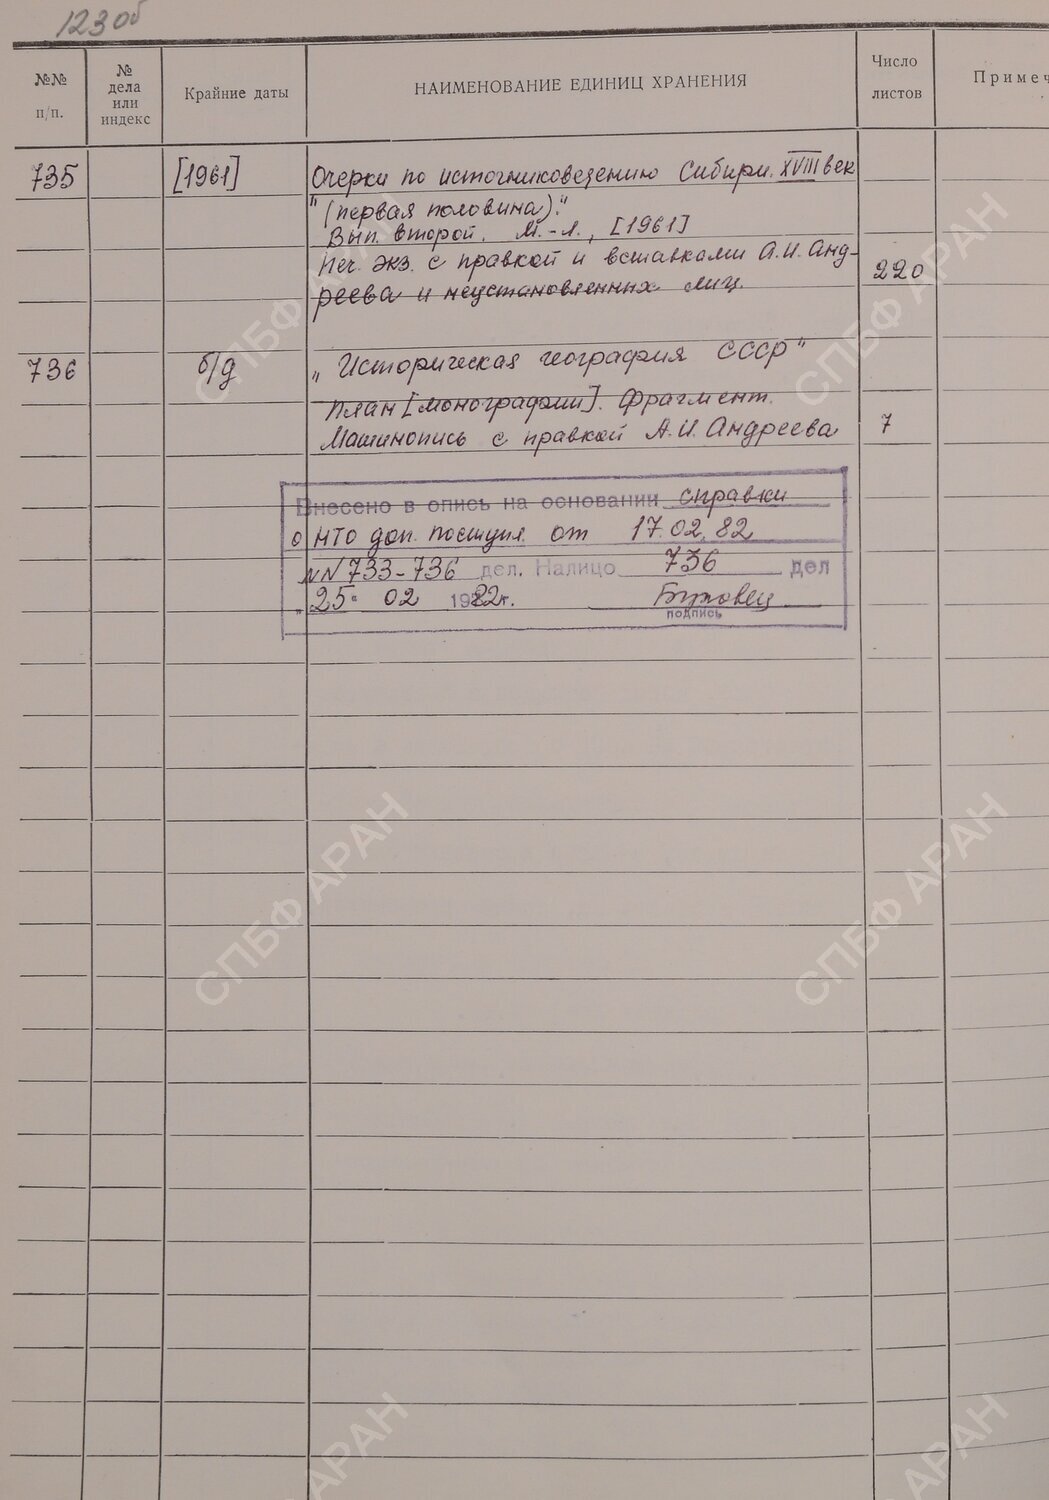 123об
№№ п/п.
№ дела или индекс
Крайние даты
НАИМЕНОВАНИЕ ЕДИНИЦ ХРАНЕНИЯ
Число листов
Примеч
735 [1961] Очерки по источниковедению Сибири. XVIII век
"(первая половина)."
Вып. второй. М.-Л., [1961]
Печ. экз. с правкой и вставками А.И. Анд-
реева и неустановленных лиц. 220
736 б/д „Историческая география СССР"
План [монографии]. Фрагмент.
Машинопись с правкой А.И. Андреева 7
Внесено в опись на основании справки
о НТО доп. поступл. от 17.02.82
NN 733-736 дел. Налицо 736 дел
„25" 02 1982г.
подпись
СПБФ АРАН
СПБФ АРАН
СПБФ АРАН
СПБФ АРАН
СПБФ АРАН
АРАН